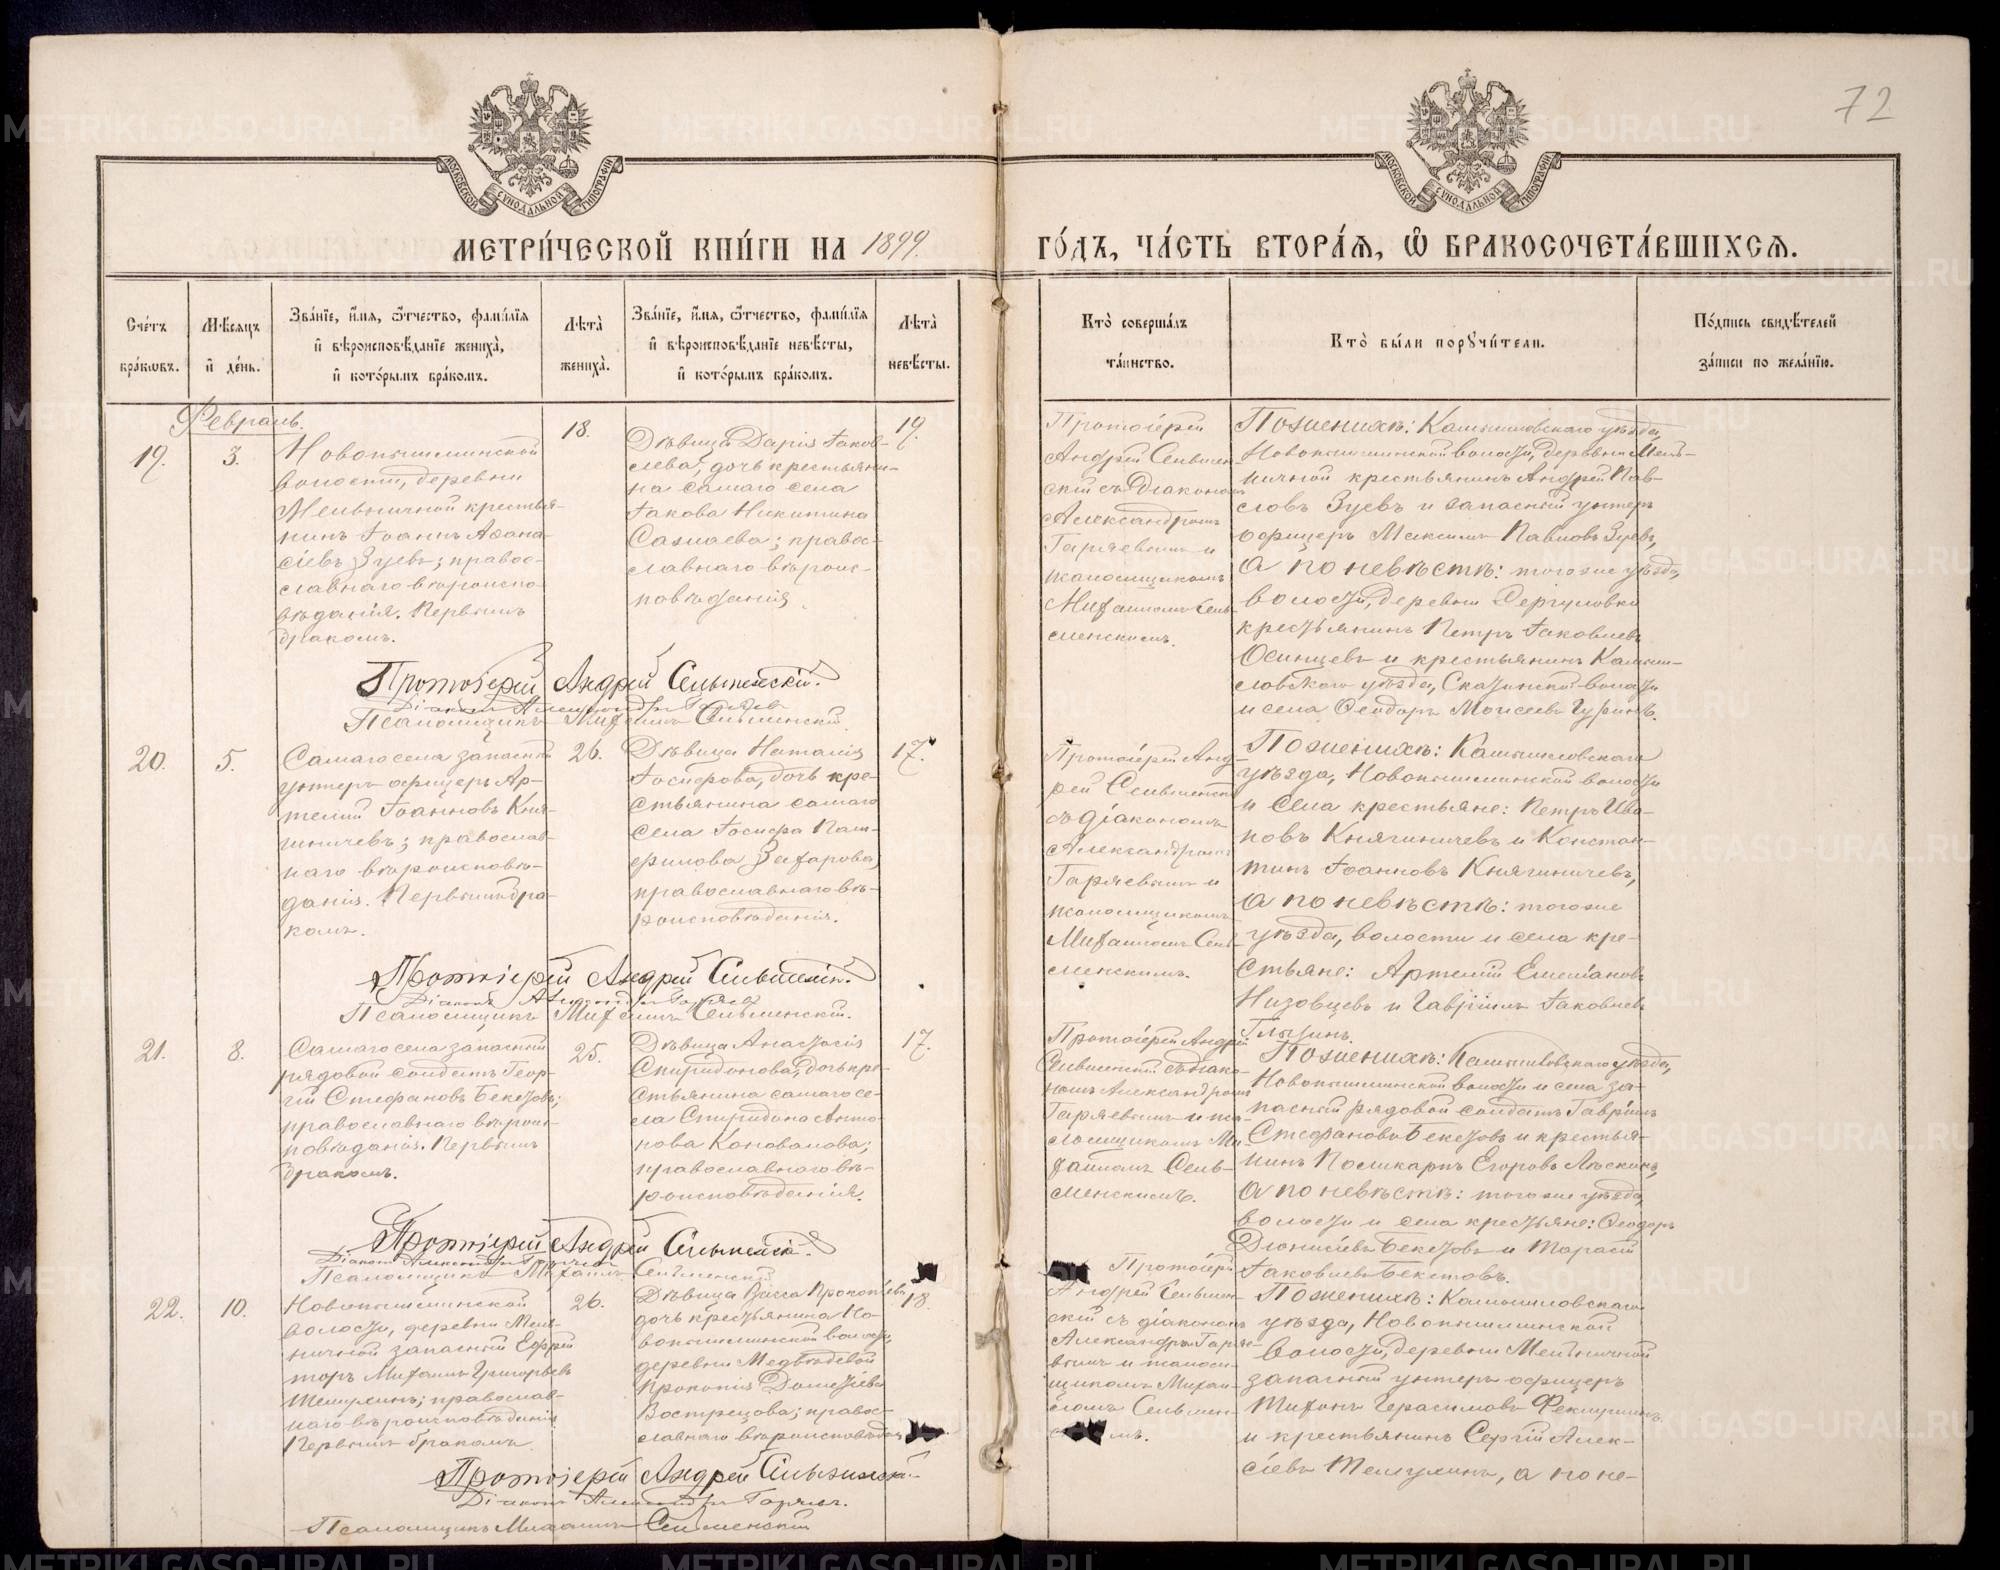 72
МОСКОВСКОЙ СѴНОДАЛЬНОЙ ТИПОГРАФІИ
МОСКОВСКОЙ СѴНОДАЛЬНОЙ ТИПОГРАФІИ
МЕТРИ́ЧЕСКОЙ КНИ́ГИ НА 1899
ГО́ДЪ, ЧА́СТЬ ВТОРА́Я, Ѡ҆ БРАКОСОЧЕТА́ВШИХСЯ.
Сче́тъ
бра́ковъ.
Мѣ́сяцъ
и҆ де́нь.
Зва́нїе, и҆́мя, ѻ҆́тчество, фами́лїя
и҆ вѣроисповѣ́данїе жениха̀,
и҆ кото́рымъ бра́комъ.
Лѣ́та
жениха̀.
Зва́нїе, и҆́мя, ѻ҆́тчество, фами́лїя
и҆ вѣроисповѣ́данїе невѣ́сты,
и҆ кото́рымъ бра́комъ.
Лѣ́та
невѣ́сты.
Кто̀ соверша́лъ
та́инство.
Кто̀ бы́ли порꙋчи́тели.
По́дпись свидѣ́телей
за́писи по жела́нїю.
Февраль.
19.
3.
Новопышминской
волости, деревни
Мельничной крестья-
нинъ Іоаннъ Аѳана-
сіевъ Зуевъ; правос-
славнаго вѣроиспо-
вѣданія. Первымъ
бракомъ.
18.
Дѣвица Дарія Іаков-
лева, дочь крестьяни-
на самаго села
Іакова Никитина
Сажаева; правос-
лавнаго вѣроис-
повѣданія.
19.
Протоіерей
Андрей Сельмен-
скій съ Діакономъ
Александромъ
Гаряевымъ и
псаломщикомъ
Михаиломъ Сель-
менскимъ.
По женихѣ: Камышловскаго уѣзда,
Новопышминской волости, деревни Мель-
ничной крестьянинъ Андрей Пав-
ловъ Зуевъ и запасный унтеръ
офицеръ Максимъ Павловъ Зуевъ,
а по невѣстѣ: тогоже уѣзда,
волости, деревни Сергуловки
крестьянинъ Петръ Іаковлевъ
Осинцевъ и крестьянинъ Камыш-
ловскаго уѣзда, волости
и села Ѳеодоръ Моисеевъ
Протоіерей Андрей Сельменскій.
Діаконъ Александръ Гаряевъ
Псаломщикъ Михаилъ Сельменскій.
20.
5.
Самаго села запасный
унтеръ-офицеръ Ар-
темій Іоанновъ Княг-
иничевъ; православ-
наго вѣроисповѣ-
данія. Первымъ бра-
комъ.
26.
Дѣвица Наталія
Іосифова, дочь кре-
стьянина самаго
села Іосифа Пам-
филова Захарова,
православнаго вѣ-
роисповѣданія.
17.
Протоіерей Анд-
рей Сельменскій
съ діакономъ
Александромъ
Гаряевымъ и
псаломщикомъ
Михаиломъ Сель-
менскимъ.
По женихѣ: Камышловскаго
уѣзда, Новопышминской волости
и села крестьяне: Петръ Ива-
новъ Княгиничевъ и Констан-
тинъ Іоанновъ Княгиничевъ,
а по невѣстѣ: тогоже
уѣзда, волости и села кре-
стьяне: Артемій Емеліановъ
Низовцевъ и Гавріилъ Іаковлевъ
Глызинъ.
Протоіерей Андрей Сельменскій.
Діаконъ Александръ Гаряевъ
Псаломщикъ Михаилъ Сельменскій.
21.
8.
Самаго села запасный
рядовой солдатъ Геор-
гій Стефановъ Бекетовъ;
православнаго вѣроис-
повѣданія. Первымъ
бракомъ.
25.
Дѣвица Анастасія
Спиридонова, дочь кре-
стьянина самаго се-
ла Спиридона Анто-
нова Коновалова;
православнаго вѣ-
роисповѣданія.
17.
Протоіерей Андрей
Сельменскій съ діако-
номъ Александромъ
Гаряевымъ и пса-
ломщикомъ Ми-
хаиломъ Сель-
менскимъ.
По женихѣ: Камышловскаго уѣзда,
Новопышминской волости и села за-
пасный рядовой солдатъ Гавріилъ
Стефановъ Бекетовъ и крестья-
нинъ Поликарпъ Егоровъ
а по невѣстѣ: тогоже уѣзда,
волости и села крестьяне: Ѳеодоръ
Діонисіевъ Бекетовъ и Тарасій
Іаковлевъ Бекетовъ.
Протоіерей Андрей Сельменскій.
Діаконъ Александръ Гаряевъ
Псаломщикъ Михаилъ Сельменскій
22.
10.
Новопышминской
волости, деревни Мель-
ничной запасный Ефрей-
торъ Михаилъ Григорьевъ
Шемулинъ; православ-
наго вѣроисповѣданія
Первымъ бракомъ.
26.
Дѣвица Васса Прокопіева
дочь крестьянина Но-
вопышминской волости,
деревни Медвѣдевой
Прокопія Дометіева
Вострецова; правос-
славнаго вѣроисповѣдан.
18.
Протоіерей
Андрей Сельмен-
скій съ діакономъ
Александръ Гаряе-
вымъ и псалом-
щикомъ Михаи-
ломъ Сельмен-
По женихѣ: Камышловскаго
уѣзда, Новопышминской
волости, деревни Мельничной
запасный унтеръ офицеръ
Тихонъ Герасимовъ
и крестьянинъ Сергій Алек-
сіевъ Шемулинъ, а по не-
Протоіерей Андрей Сельменскій.
Діаконъ Александръ Гаряевъ.
Псаломщикъ Михаилъ Сельменскій
METRIKI.GASO-URAL.RU